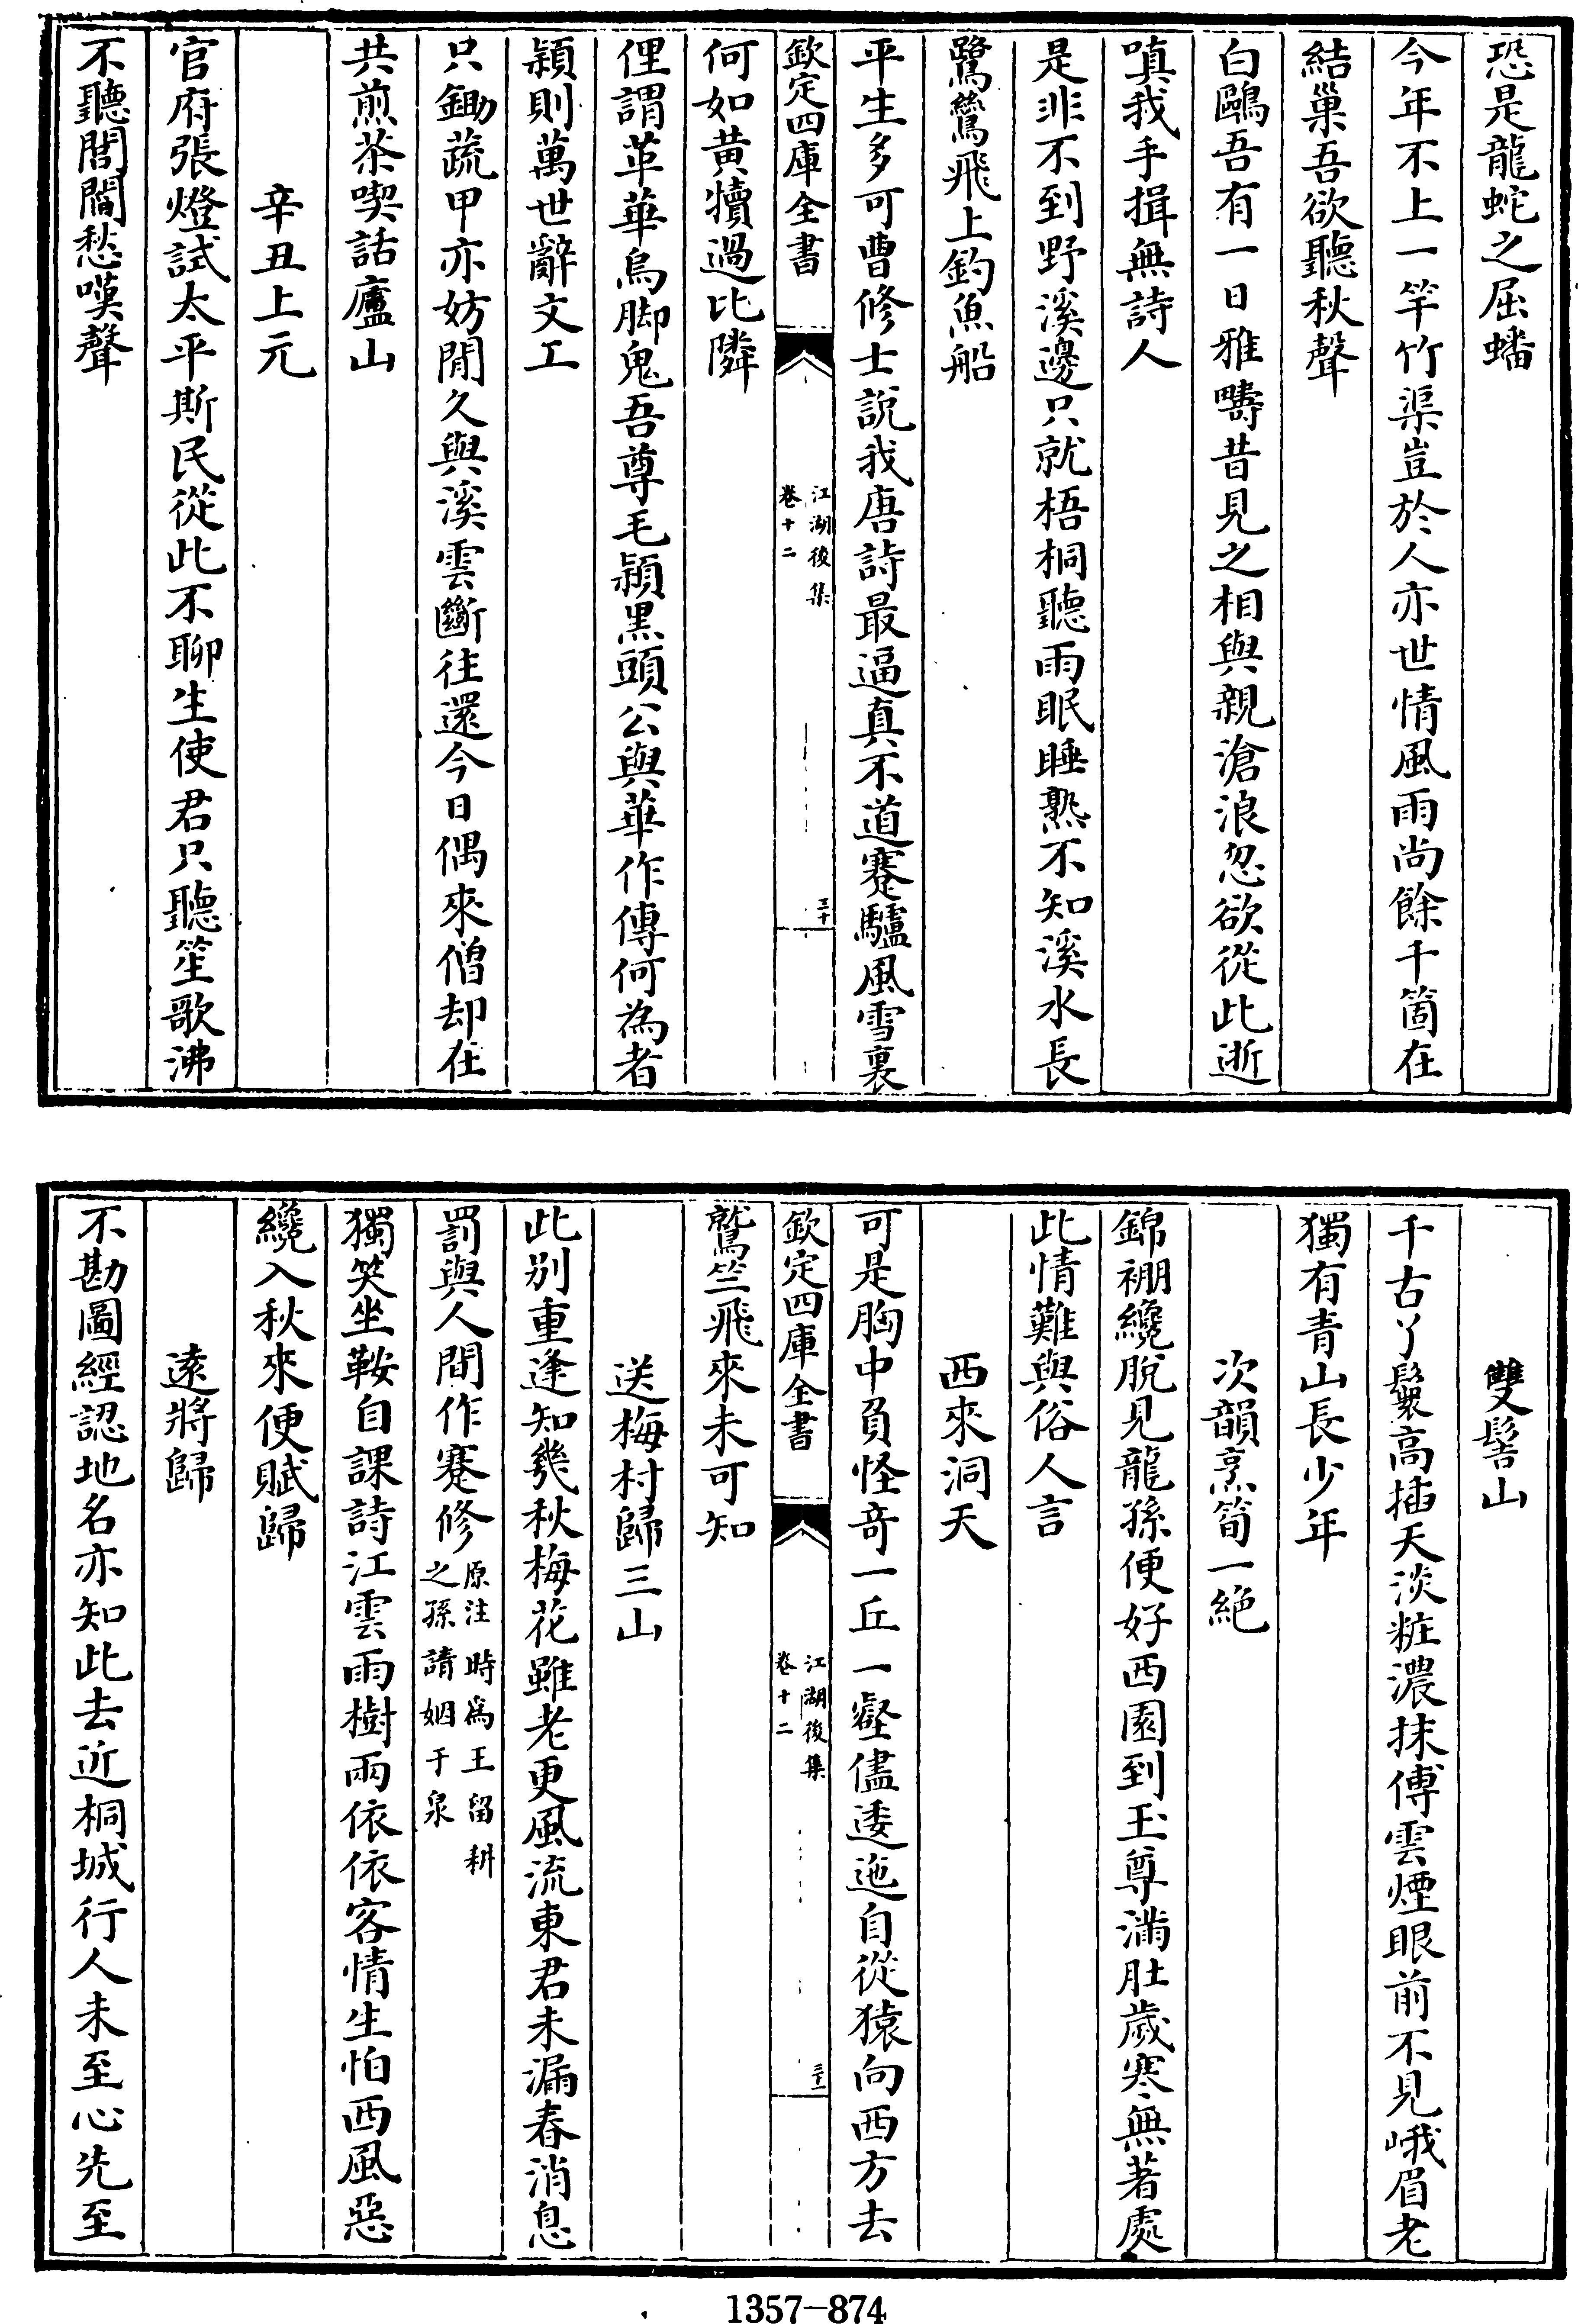 恐是龍蛇之屈蟠
今年不上一竿竹渠豈於人亦世情風雨尚餘千箇在
結巢吾欲聽秋聲
白鷗吾有一日雅疇昔見之相與親滄浪忽欲從此逝
嗔我手揖無詩人
是非不到野溪邊只就梧桐聽雨眠睡熟不知溪水長
鷺鷥飛上釣魚船
平生多可曹修士說我唐詩最逼真不道蹇驢風雪裏
欽定四庫全書
江湖後集
卷十二
三十
何如黃犢過比隣
俚謂革華烏脚鬼吾尊毛穎黑頭公與華作傳何為者
穎則萬世辭文工
只鋤蔬甲亦妨閒久與溪雲斷往還今日偶來僧却在
共煎茶喫話廬山
辛丑上元
官府張燈試太平斯民從此不聊生使君只聽笙歌沸
不聽閭閻愁嘆聲
雙髻山
千古丫鬟高插天淡粧濃抹傅雲煙眼前不見峨眉老
獨有青山長少年
次韻烹筍一絕
錦棚纔脫見龍孫便好西園到玉尊滿肚歲寒無著處
此情難與俗人言
西來洞天
可是胸中負怪奇一丘一壑儘逶迤自從猿向西方去
欽定四庫全書
江湖後集
卷十二
三十一
鷲竺飛來未可知
送梅村歸三山
此別重逢知幾秋梅花雖老更風流東君未漏春消息
罰與人間作蹇修原注時為王留耕之孫請姻于泉
獨笑坐鞍自課詩江雲雨樹兩依依客情生怕西風惡
纔入秋來便賦歸
遠將歸
不勘圖經認地名亦知此去近桐城行人未至心先至
1357-874